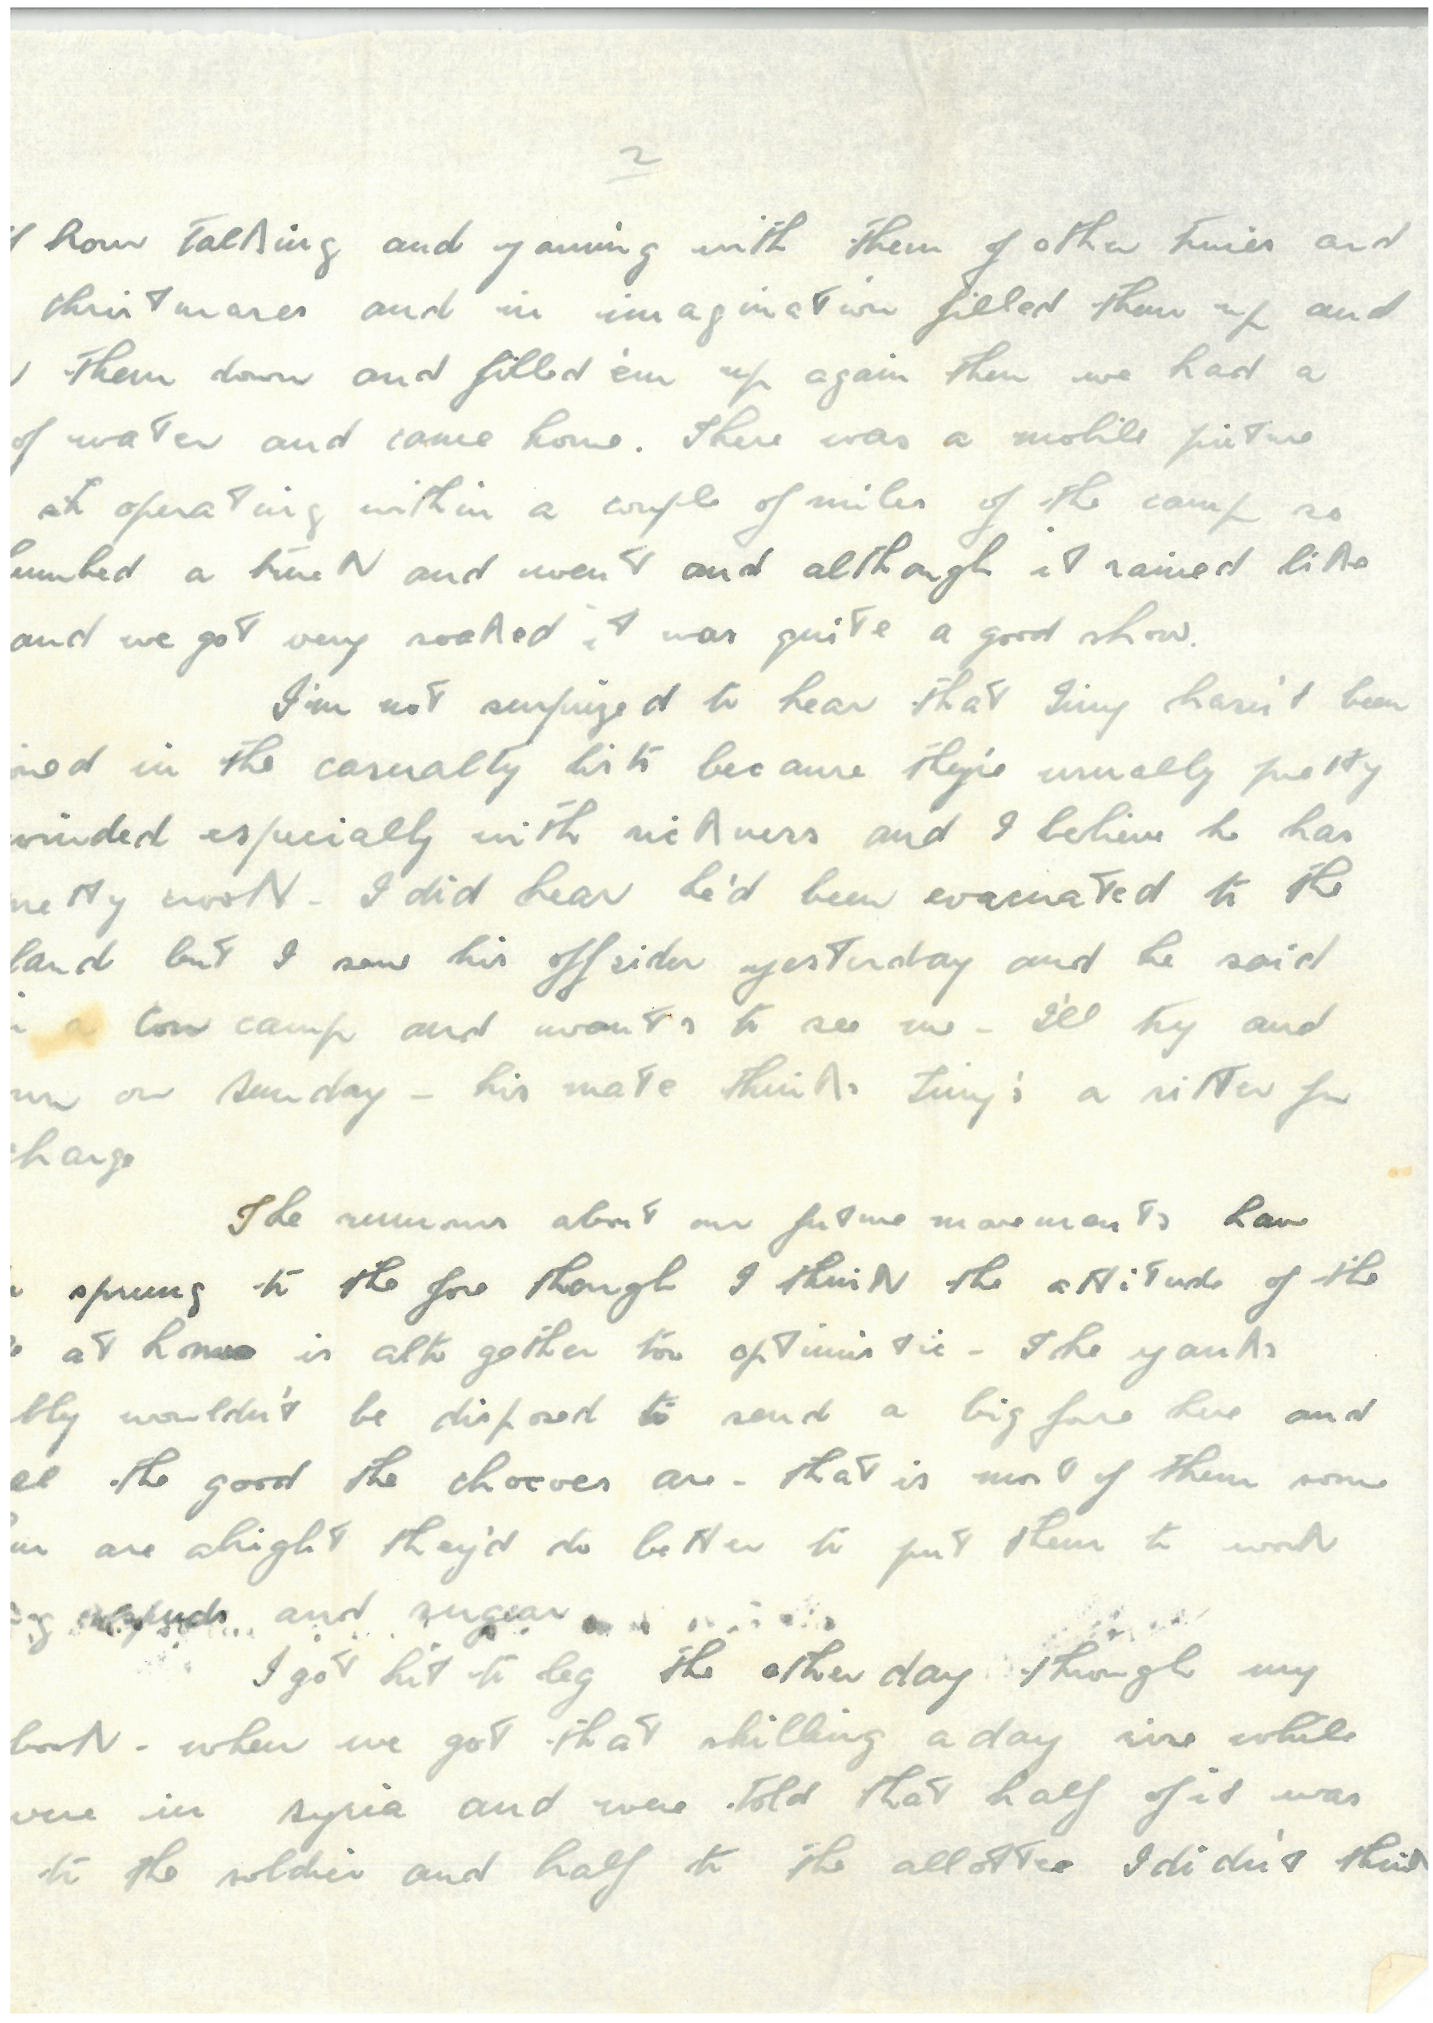 2
hour talking and yarning with them of other times and
christmases and in imagination filled them up and
them down and filled 'em up again then we had a
of water and came home. There was a mobile picture
operating within a couple of miles of the camp so
a truck and went and although it rained like
and we got very soaked it was quite a good show.
I'm not surprized to hear that Tiny hasn't been
in the casualty lists because they're usually pretty
winded especially with sickness and I believe he has
crook - I did hear he'd been evacuated to the
land but I saw his offsider yesterday and he said
a con camp and wants to see me - I'll try and
on Sunday - his mate thinks Tiny's a sitter for
charge
The rumours about our future movements have
sprung to the fore though I think the attitude of the
at home is altogether too optimistic - The yanks
bly wouldn't be disposed to send a big force here and
the good the chocoes are - that is most of them some
are alright they'd do better to put them to work
spuds and sugar
I got hit to leg the other day through my
book - when we got that shilling a day rise while
were in syria and were told that half of it was
to the soldier and half to the allottee I didn't think